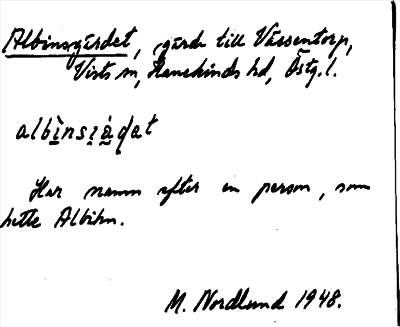 Albinsgärdet, gärde till Vässentorp,
Vists sn, Hanekinds hd, Östg. l.
albinsgädat
Har namn efter en person, som
hette Albihn.
M. Nordlund 1948.